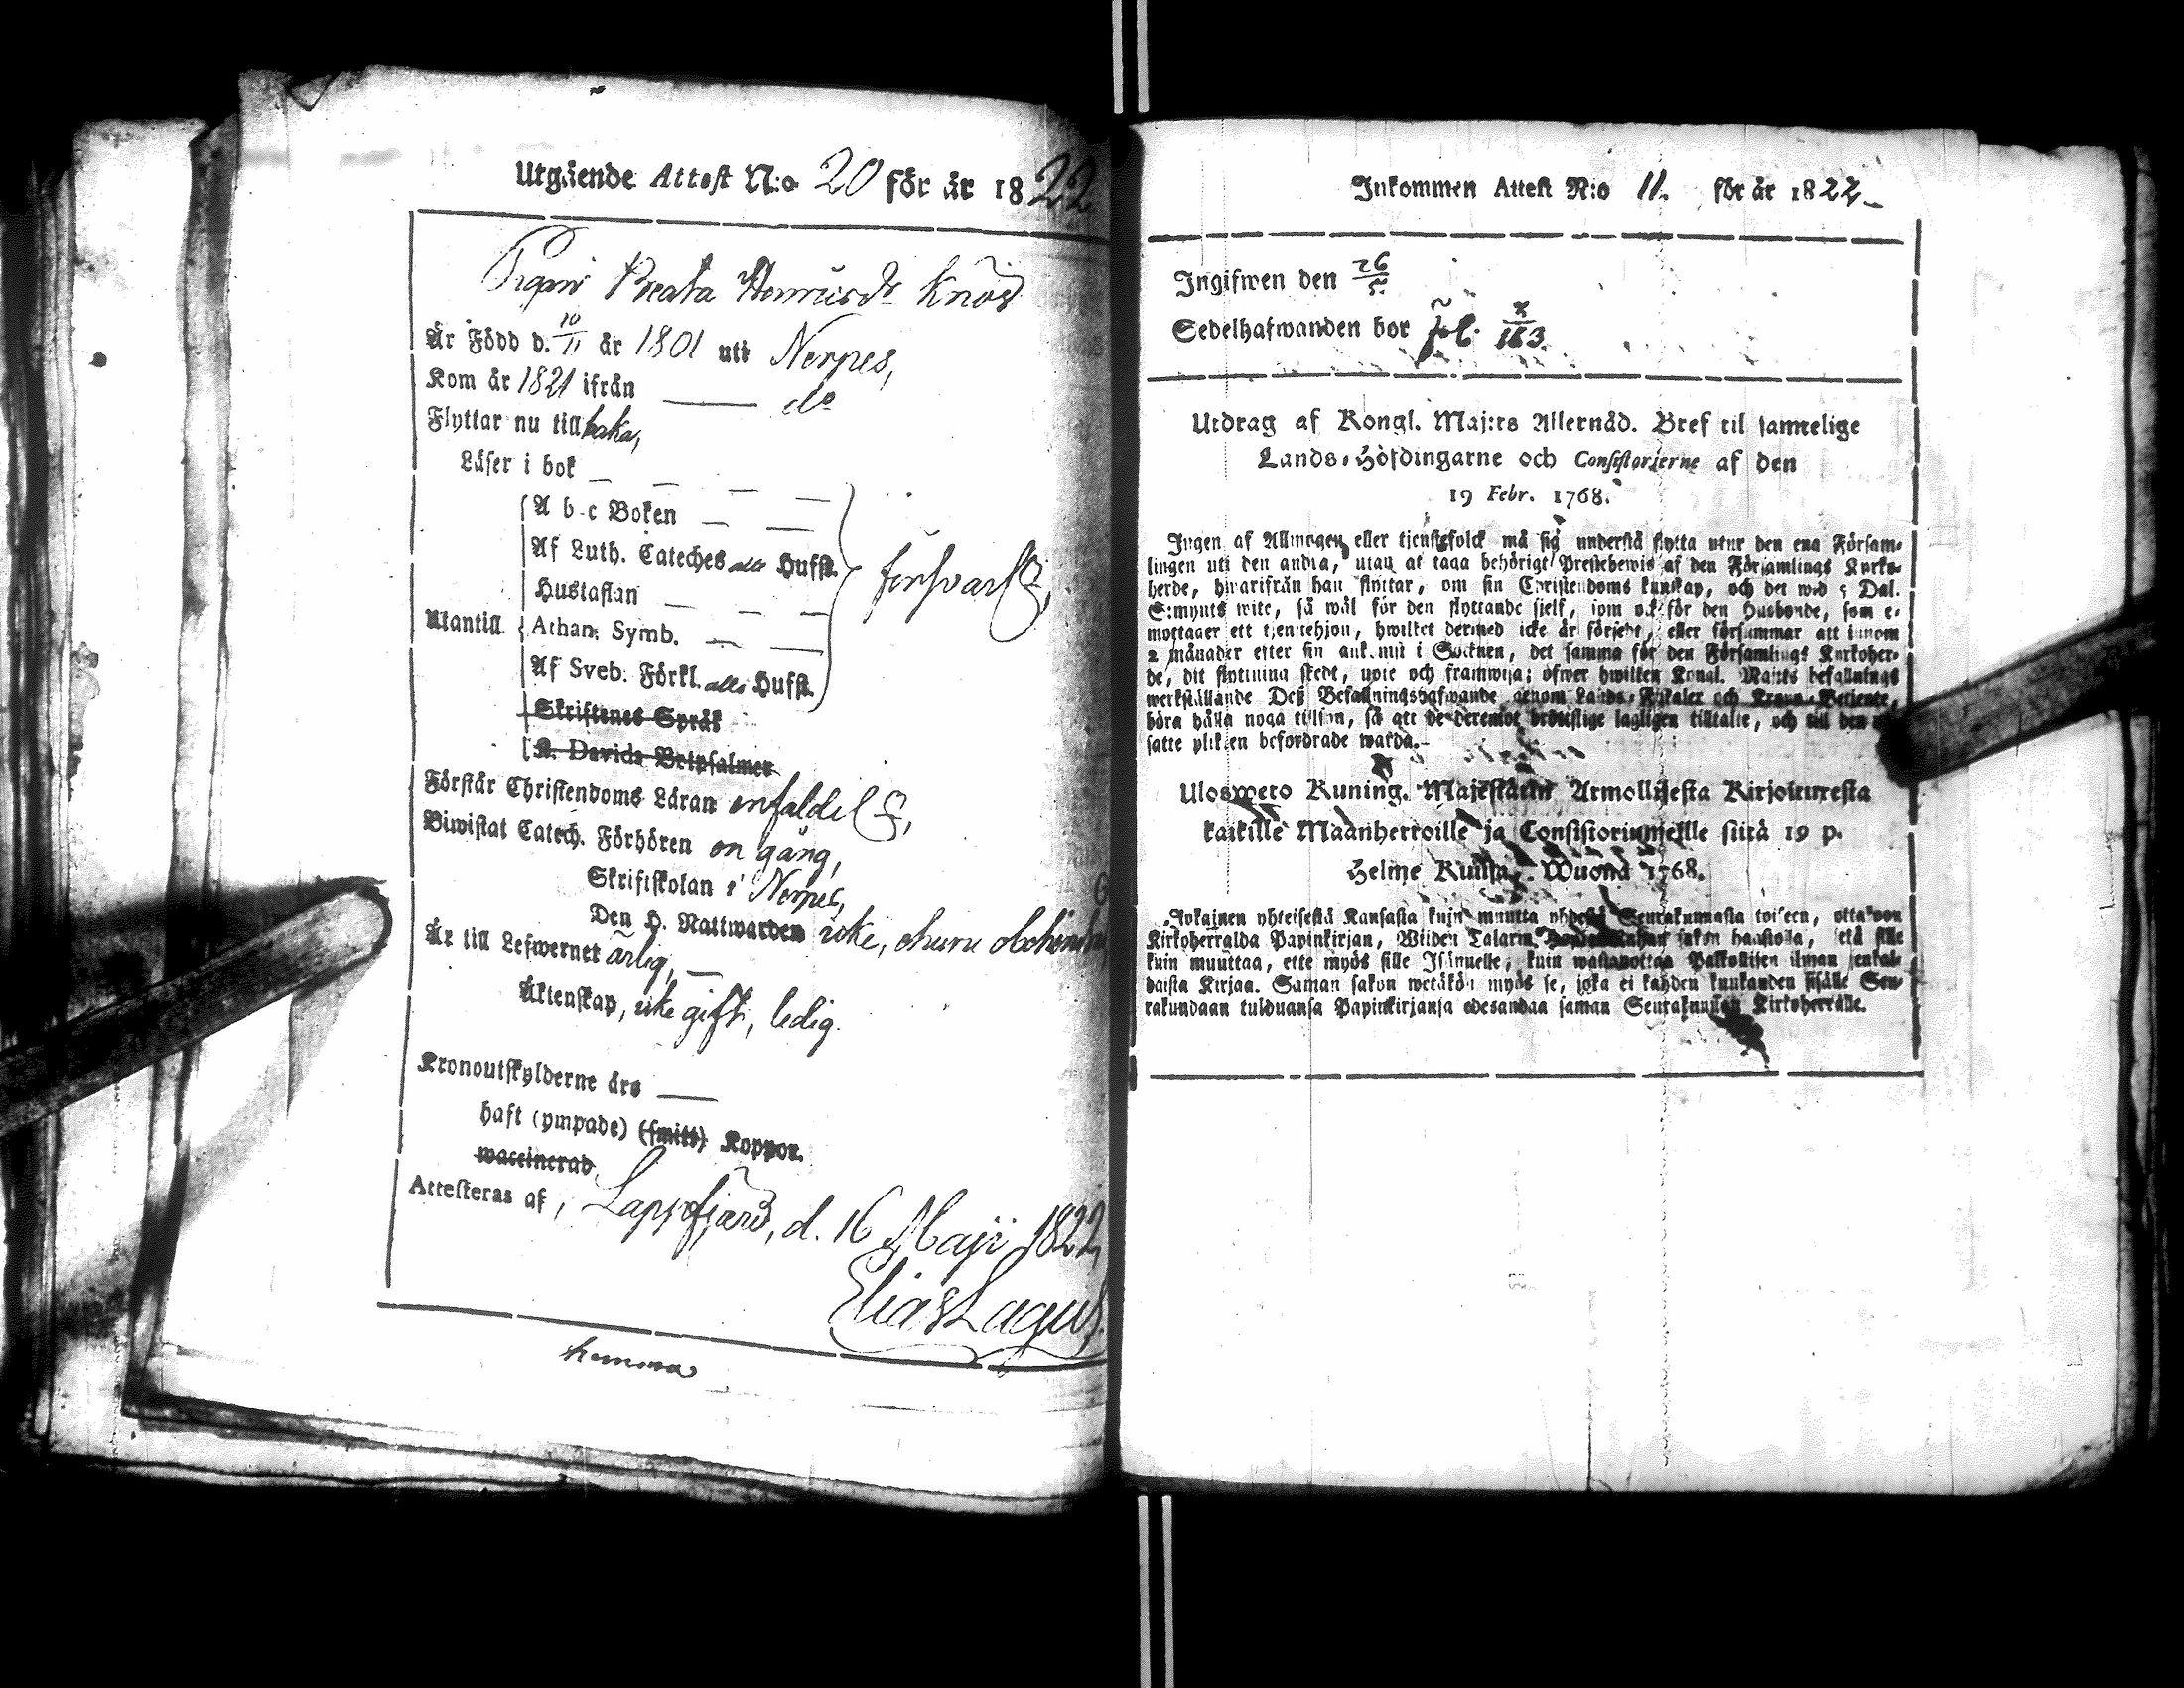 Utgående Attest N:o 20 för år 1822
Pigan Beata Henricsdr Knös
Är Född d. 10/11 år 1801 uti Nerpes,
Kom år 1821 ifrån — do
Flyttar nu till baka,
Läser i bok — — — —
A b c Boken — —
Af Luth. Cateches alla Hufst.
försvarl:,
Hustaflan — — —
Utantill Athan. Symb. — —
Af Sveb. Förkl. alla Hufst.
Skriftenes Språk
K. Davids Botpsalmer
Förstår Christendoms Läran enfaldel:,
Biwistat Catech. Förhören en gång,
Skriftskolan i Nerpes,
Den H. Nattwarden icke, ehuru
Är till Lefwernet ärlig, —
Äktenskap, icke gift, ledig.
Kronoutskylderne års —
haft (ympade) (smitt) Koppor.
waccinerad
Attesteras af, Lappfjärd, d. 16 Maji 1822,
Elias Lagus.
Inkommen Attest N:o 11. för år 1822
Ingifwen den 26/5
Sedelhafwanden bor fol. 163
Utdrag af Kongl. Maj:ts Allernåd. Bref til samtelige
Lands-Höfdingarne och Consistorierne af den
19 Febr. 1768.
Ingen af Allmogen eller tjenstefolck må sig understå flytta utur den ena Försam-
lingen uti den andra, utan at taga behörigt Prestebewis af den Församlings Kyrko-
herde, hwarifrån han flyttar, om sin Christendoms kunskap, och det wid 5 Dal.
S:mynts wite, så wäl för den flyttande sjelf, som ock för den Husbonde, som e-
mottager ett tjenstehjon, hwilket dermed icke är försedt, eller försummar att innom
2 månader efter sin ankomst i Socknen, det samma för den Församlings Kyrkoher-
de, dit flyttning skedt, upte och framwisa; öfwer hwilken Kongl. Maj:ts befallnings
werkställande Deß Befallningshafwande genom Lands-Fiskaler och Krono-Betjente,
böra hålla noga tillsyn, så att de deremot brottslige lagligen tilltalte, och till den
satte plikten befordrade warda.
Uloswето Kuning. Majestätin Armollisesta Kirjoituxesta
kaikille Maanherroille ja Consistoriumeille siitä 19 p.
Helme Kuusa Wuona 1768.
Jokainen yhteisestä Kansasta kuin muutta yhdestä Seurakunnasta toiseen, ottakoon
Kirkoherralda Papinkirjan, Wiiden Talarin sakon haastolla, että sille
kuin muuttaa, ette myös sille Isännelle, kuin wastanottaa Palkollisen ilman senkal-
daista Kirjaa. Saman sakon wetäkön myös se, joka ei kahden kuukauden sisälle Seu-
rakundaan tulduansa Papinkirjansa edesandaa saman Seurakunnan Kirkoherralle.